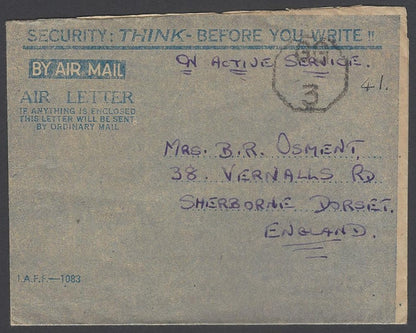 SECURITY: THINK - BEFORE YOU WRITE !!
BY AIR MAIL
ON ACTIVE SERVICE.
3
41.
AIR LETTER
IF ANYTHING IS ENCLOSED
THIS LETTER WILL BE SENT
BY ORDINARY MAIL
MRS. B.R. OSMENT,
38. VERNALLS RD
SHERBORNE DORSET.
ENGLAND.
I.A.F.F.—1083